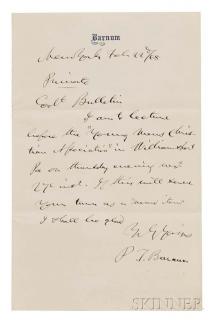 BARNUM
New York Feb 22/68
Private
Edt Bulletin
I am to lecture
before the "Young Mens Chris-
tian Association" in Williamsport
Pa on thursday evening next
27 inst. If this will serve
your turn as a news item
I shall be glad
P. T. Barnum
SKINNER